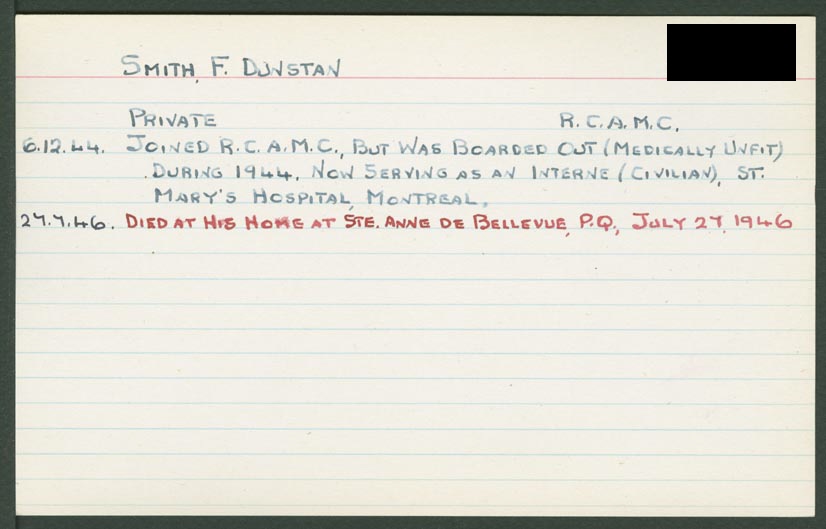 SMITH, F. DUNSTAN
PRIVATE R.C.A.M.C.
6.12.44. JOINED R.C.A.M.C., BUT WAS BOARDED OUT (MEDICALLY UNFIT)
DURING 1944. NOW SERVING AS AN INTERNE (CIVILIAN), ST.
MARY'S HOSPITAL, MONTREAL.
27.7.46. DIED AT HIS HOME AT STE. ANNE DE BELLEVUE, P.Q., JULY 27, 1946